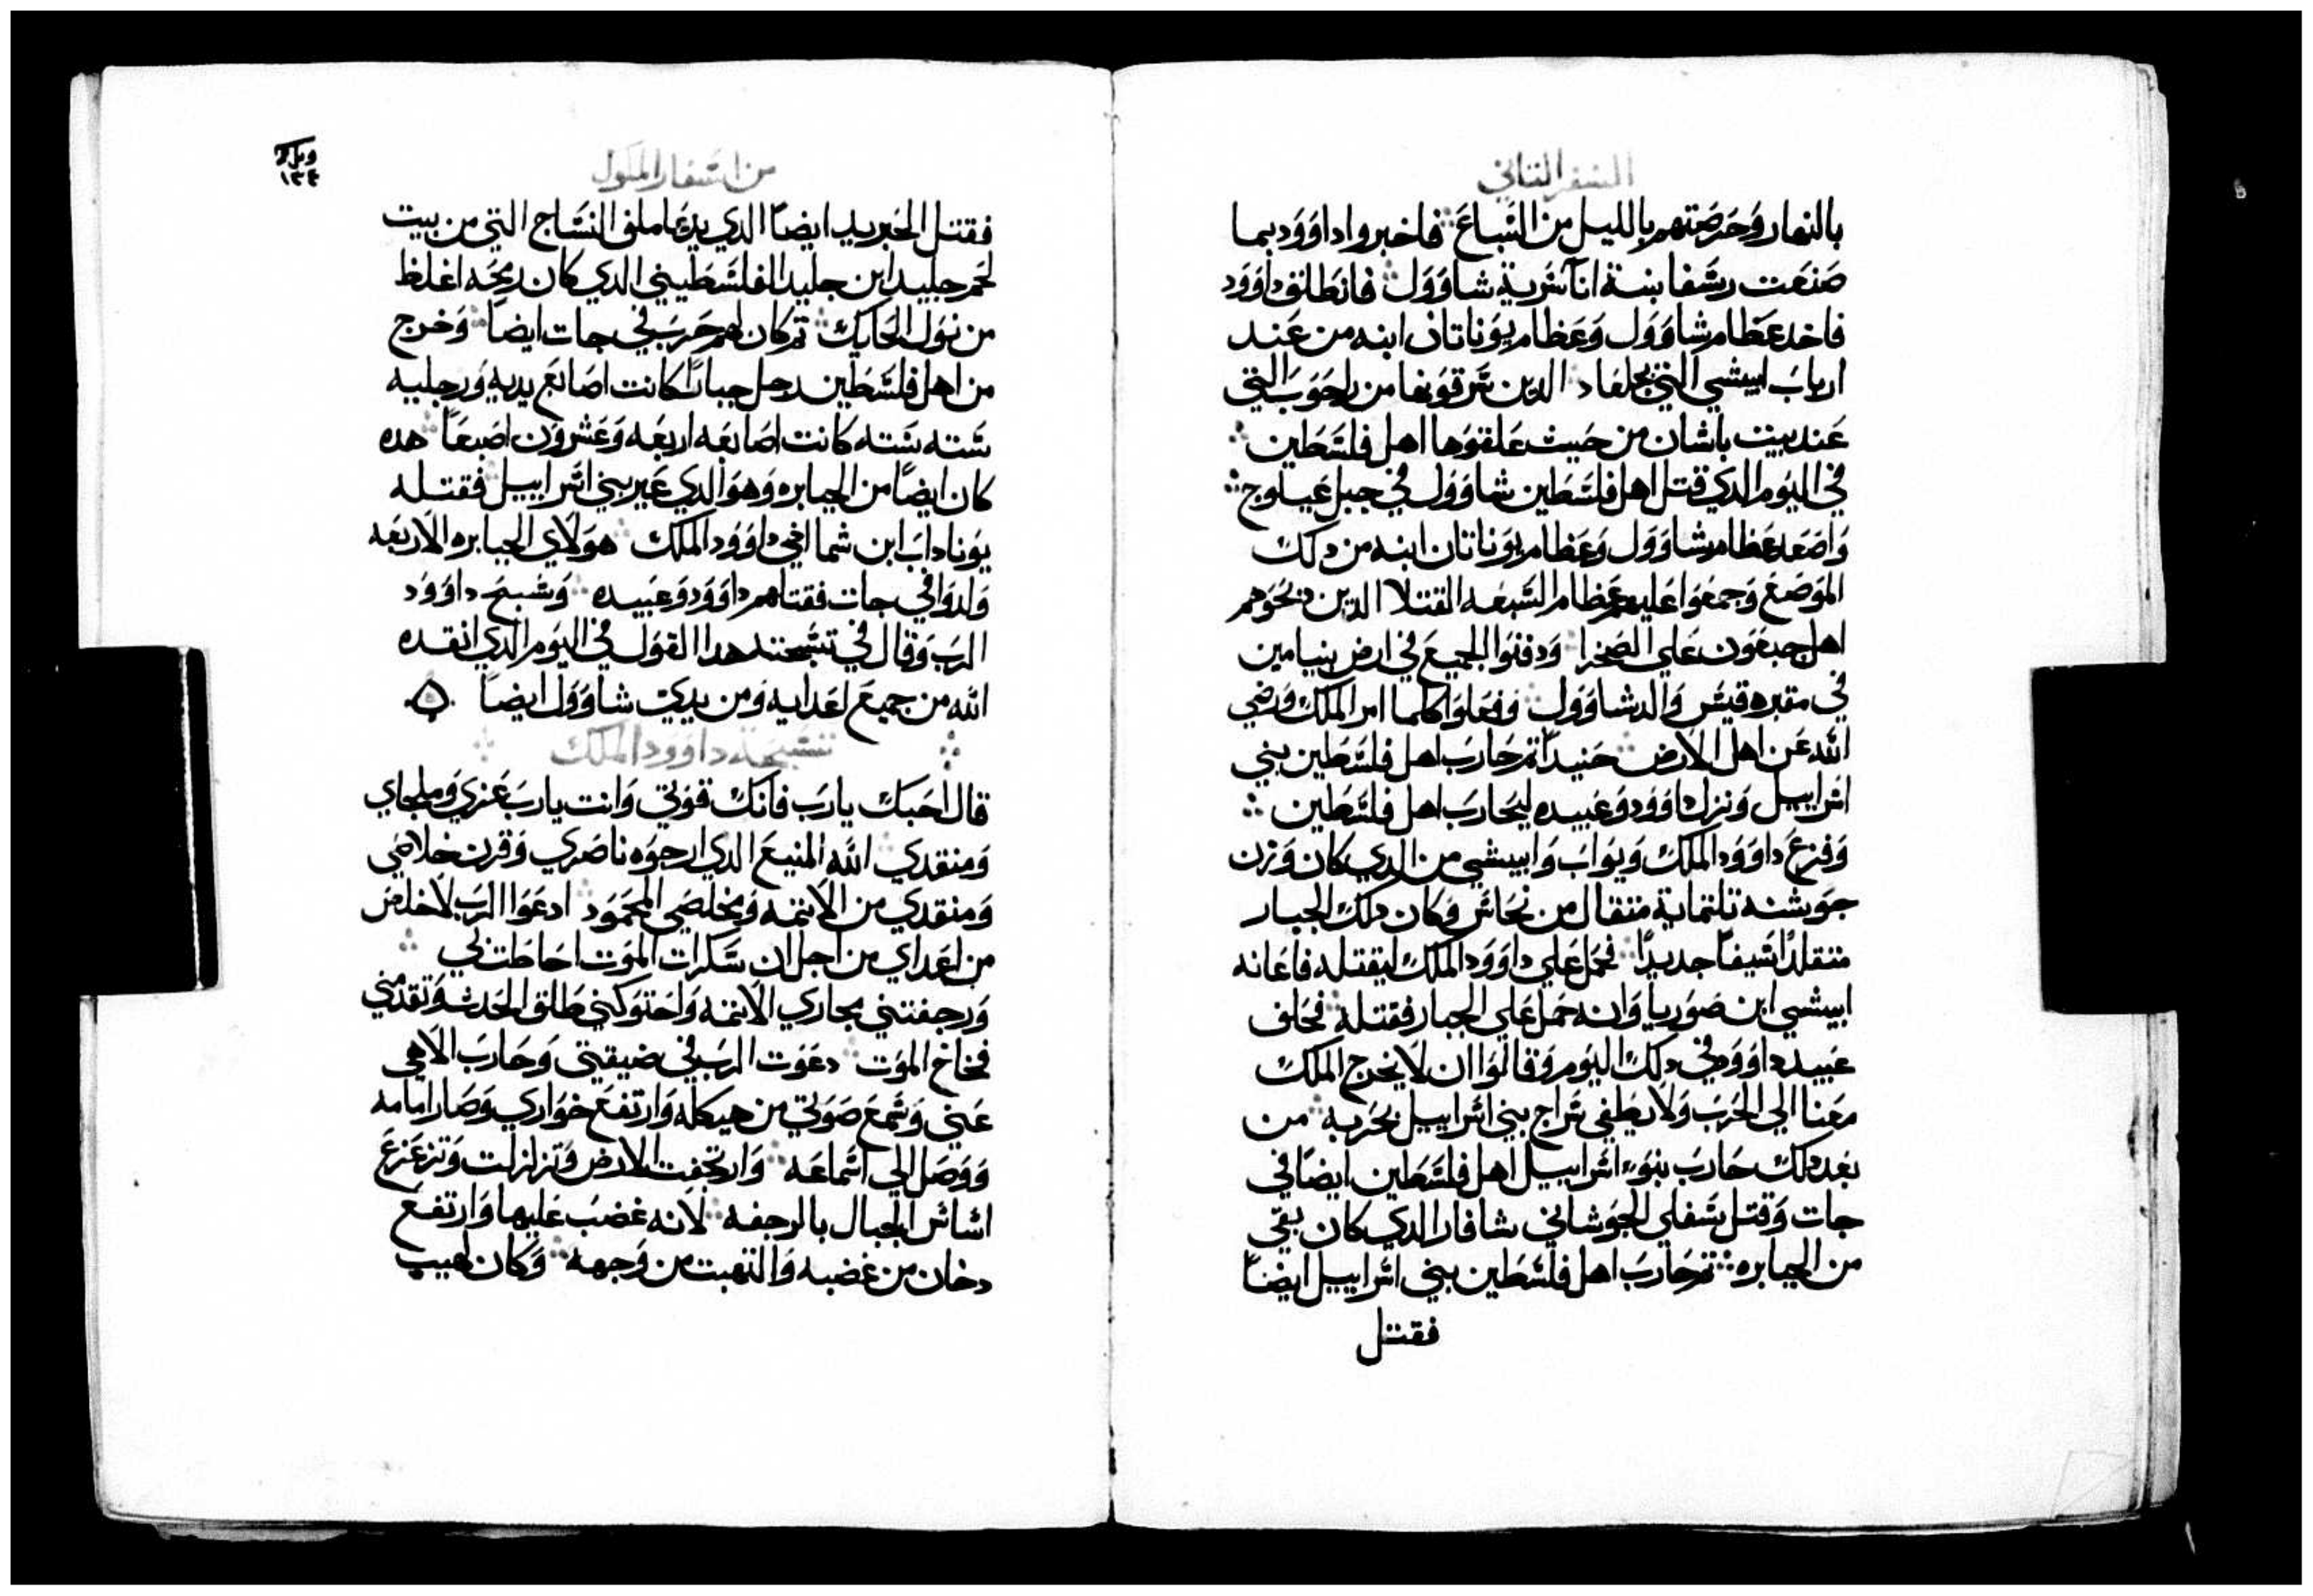 السفر الثاني
بالنهار وحرصتهم بالليل من السباع فاخبروا داوود بما
صنعت رسفا ابنة انا سرية شاوول فانطلق داوود
فاخد عظام شاوول وعظام يوناتان ابنه من عند
ارباب ابيشي التي بجلعاد الدين سرقونها من رحوب التي
عند بيت باشان من حيث علقوها اهل فلسطين
في اليوم الدي قتل اهل فلسطين شاوول في جبل غيلوج
واصعد عظام شاوول وعظام يوناتان ابنه من دلك
الموضع وجمعوا عليهم عظام السبعه القتلا الدين دبحوهم
اهل جبعون علي الصخرا ودفنوا الجميع في ارض بنيامين
في مقبره قيس والد شاوول وفعلوا كلما امر الملك ورضي
الله عن اهل الارض حنيدا تم حارب اهل فلسطين بني
اسراييل ونزل داوود وعبيده ليحارب اهل فلسطين
وفزع داوود الملك ويواب وابيشي من الدي كان وزن
جوشنه تلتماية متقال من نحاس وكان دلك الجبار
متقلدا سيفا جديدا فحمل علي داوود الملك ليقتله فاعانه
ابيشي ابن صوريا وانه حمل علي الجبار فقتله فحلف
عبيد داوود في دلك اليوم وقالوا ان لا يخرج الملك
معنا الي الحرب ولا يطفي سراج بني اسراييل بحربه من
بعد دلك حارب بنو اسراييل اهل فلسطين ايضا في
جات وقتل سفلي الجوشاني شافار الدي كان بقي
من الجبابره تم حارب اهل فلسطين بني اسراييل ايضا
فقتل
من اسفار الملوك
١٣٤
فقتل الحبريد ايضا الدي يدعا ملف النساج التي من بيت
لحم جليد ابن جليد الفلسطيني الدي كان رمحه اغلظ
من نول الحايك تم كان لهم حرب في جات ايضا وخرج
من اهل فلسطين رجل جبارا كانت اصابع يديه ورجليه
سته سته كانت اصابعه اربعه وعشرون اصبعا هده
كان ايضا من الجبابره وهو الدي عير بني اسراييل فقتله
يوناداب ابن شما اخي داوود الملك هولاي الجبابره الاربعه
ولدوا في جات فقتلهم داوود وعبيده وسبح داوود
الرب وقال في تسبحته هدا القول في اليوم الدي انقده
الله من جميع اعدايه ومن يدي شاوول ايضا
تسبحة داوود الملك
قال احبك يارب فانك قوتي وانت يارب عزي وملجاي
ومنقدي الله المنيع الدي ارجوه ناصري وقرن خلاصي
ومنقدي من الاتمه ومخلصي المحمود ادعوا الرب لاخلص
من اعداي من اجل ان سكرات الموت احاطت بي
ورجفتني مجاري الاتمه واحتوكني طلق الحدث وتقدمني
فخاخ الموت دعوت الرب في ضيقتي وحارب الاهي
عني وسمع صوتي من هيكله وارتفع خواري وصار امامه
ووصل الي اسماعه وارتجفت الارض وتزلزلت وتزعزع
اساس الجبال بالرجفه لانه غضب عليها وارتفع
دخان من غضبه والتهبت من وجهه وكان لهيب